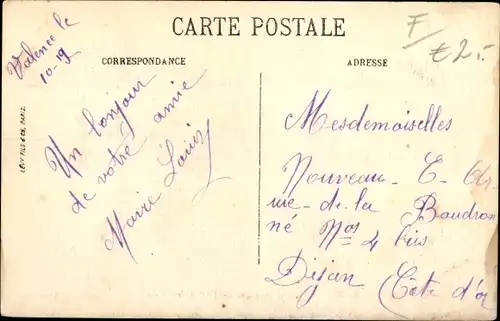 CARTE POSTALE
F/
€2.-
Valence le
10-19
CORRESPONDANCE
Un bonjour
de votre amie
Marie Louis
LÉVY FILS & Cie, PARIS.
ADRESSE
Mesdemoiselles
Nouveau - E -
rue - de - la Boudron
né Nos 4 bis
Dijon (Côte d'or